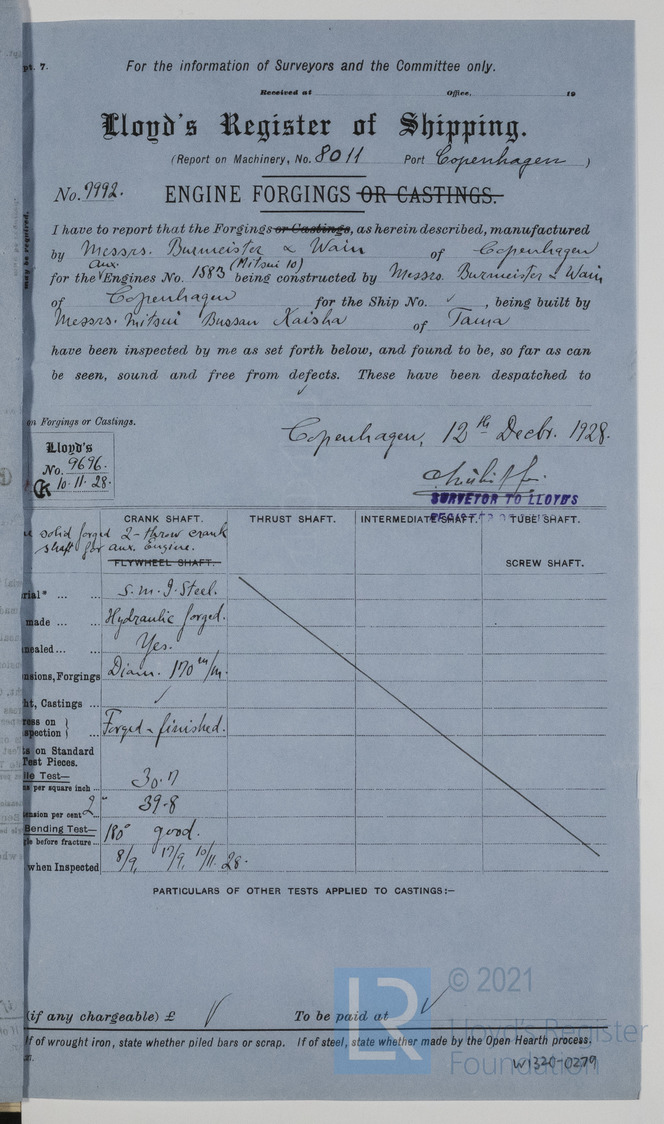 pt. 7.
For the information of Surveyors and the Committee only.
Received at Office, 19
Lloyd's Register of Shipping.
(Report on Machinery, No. 8011 Port Copenhagen )
No. 7992. ENGINE FORGINGS OR CASTINGS.
may be required,
I have to report that the Forgings or Castings, as herein described, manufactured
by Messrs. Burmeister & Wain of Copenhagen
for the Aux. Engines No. 1883 (Mitsui 10) being constructed by Messrs. Burmeister & Wain
of Copenhagen for the Ship No. ✓, being built by
Messrs. Mitsui Bussan Kaisha of Tama
have been inspected by me as set forth below, and found to be, so far as can
be seen, sound and free from defects. These have been despatched to
✓
on Forgings or Castings.
Copenhagen, 12th Decbr. 1928.
Lloyd's
No. 9696.
10.11.28.
SURVEYOR TO LLOYD'S
CRANK SHAFT. THRUST SHAFT. INTERMEDIATE SHAFT. TUBE SHAFT.
solid forged 2-throw crank
shaft for aux. engine.
FLYWHEEL SHAFT. SCREW SHAFT.
rial* ... ... S.M.I. Steel.
made ... ... Hydraulic forged.
nealed ... ... Yes.
nsions, Forgings Diam. 170 m/m.
ht, Castings ... ✓
ress on
spection ... Forged & finished.
ts on Standard
Test Pieces.
le Test—
s per square inch ... 30.7
ension per cent 2" 39.8
Bending Test— 180° good.
gle before fracture ...
when Inspected 8/9, 17/9, 10/11. 28.
PARTICULARS OF OTHER TESTS APPLIED TO CASTINGS:—
(if any chargeable) £ ✓ To be paid at ✓
If of wrought iron, state whether piled bars or scrap. If of steel, state whether made by the Open Hearth process.
LR
© 2021
Lloyd's Register
Foundation
W1320-0279